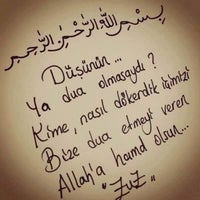 بسم الله الرحمن الرحيم
Düşünün...
Ya dua olmasaydı?
Kime, nasıl dökerdik içimizi
Bize dua etmeyi veren
Allah'a hamd olsun...
"ZuZ"